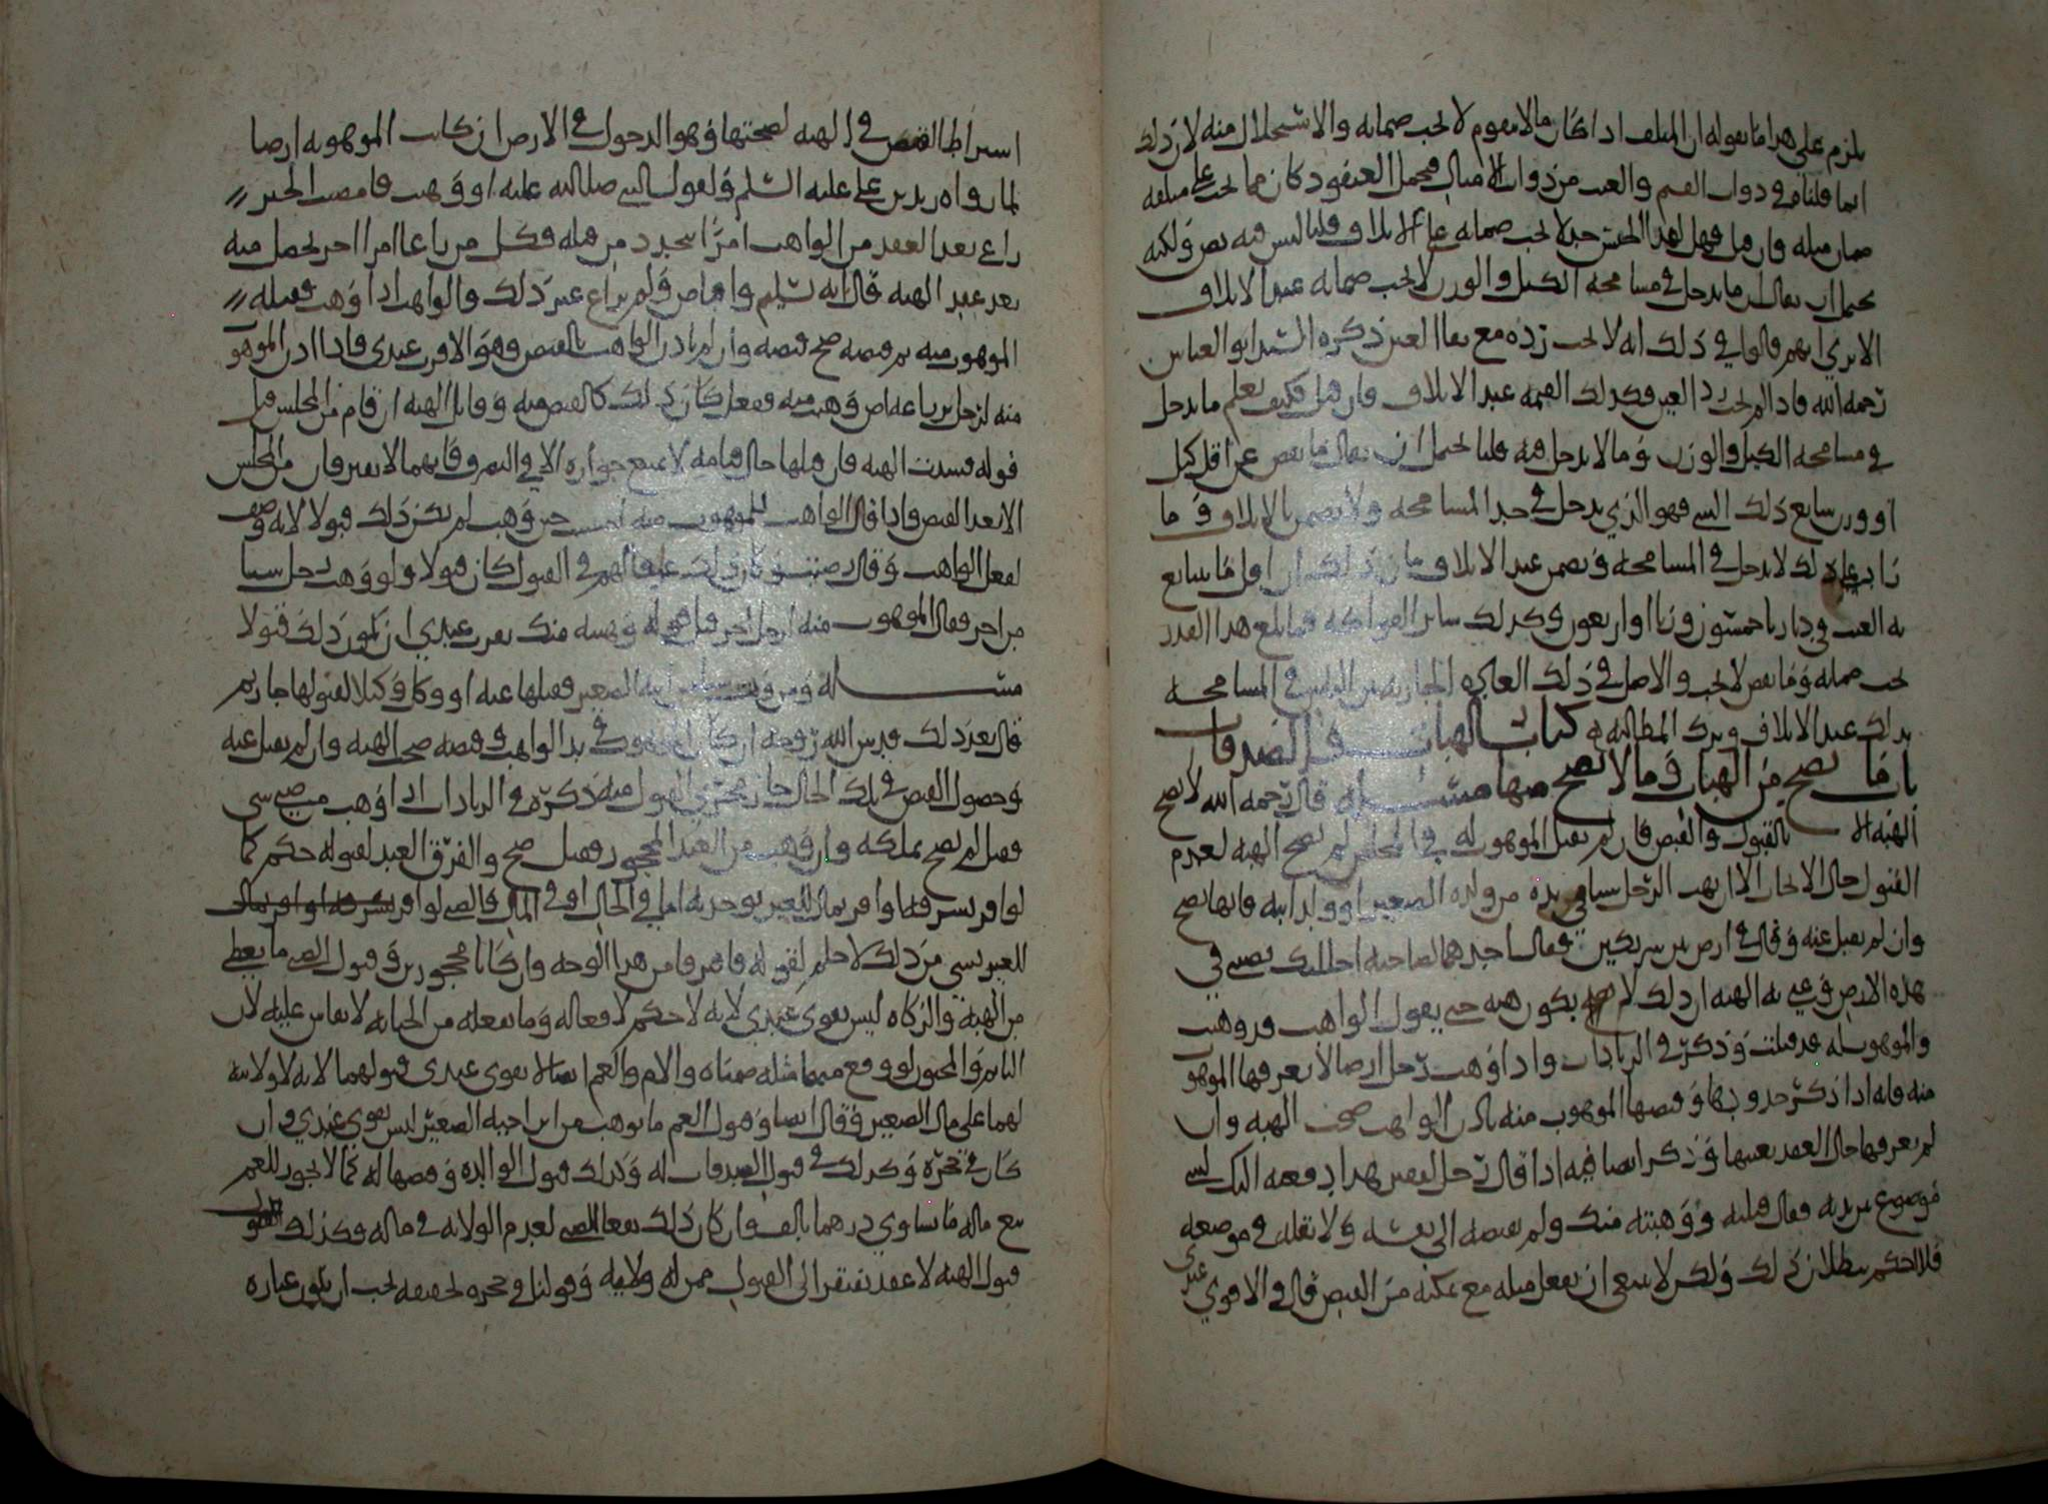 يلزم على هذا ما نقوله ان المتلف اذا كان مما لا يتقوم لا يجب ضمانه والاستحلال منه لان ذلك
انما قلناه في ذوات القيم والعنب من ذوات الامثال فجعل العنقود كان مما يجب على متلفه
ضمان مثله فان قيل فهل لهذا الجنس حد لا يجب ضمانه على الاتلاف قلنا ليس فيه نص ولكنه
يحتمل ان يقال ان ما يدخل في مسامحة الكيل والوزن لا يجب ضمانه عند الاتلاف
الا ترى انهم قالوا في ذلك انه لا يجب رده مع بقاء العين ذكره السيد ابو العباس
رحمه الله فاذا لم يجب رد العين فكذلك القيمة عند الاتلاف فان قيل فكيف يعلم ما يدخل
في مسامحة الكيل والوزن وما لا يدخل فيه قلنا يحتمل ان يقال ما نقص عن اقل كيل
او وزن يباع ذلك الشي فهو الذي يدخل في حد المسامحة ولا يضمن بالاتلاف وما
زاد على ذلك لا يدخل في المسامحة ويضمن عند الاتلاف
به العنب في ديارنا خمسون وزنا او اربعون وكذلك سائر الفواكه فما بلغ هذا القدر
يجب ضمانه وما نقص لا يجب والاصل في ذلك العادة الجارية بين الناس في المسامحة
بذلك عند الاتلاف وترك المطالبة به كتاب الهبات والصدقات
باب ما يصح من الهبات وما لا يصح منها مسئلة قال رحمه الله لا تصح
الهبة الا بالقبول والقبض فان لم يقبل الموهوب له في المجلس لم تصح الهبة لعدم
القبول حال الايجاب الا ان يهب الرجل شيا في يده من ولده الصغير او ولد ابنه فانها تصح
وان لم يقبل عنه وقال في ارض بين شريكين فقال احدهما لصاحبه احللتك نصيبي في
هذه الارض وعنى به الهبة ان ذلك لا يكون هبة حتى يقول الواهب قد وهبت
والموهوب له قد قبلت وذكر في الزيادات واذا وهب رجل ارضا لا يعرفها الموهوب
منه فانه اذا ذكر حدودها وقبضها الموهوب منه باذن الواهب صحت الهبة وان
لم يعرفها حال العقد بعينها وذكر ايضا فيه اذا قال رجل لفقير هذا دفعه اليك لشي
موضوع بين يديه فقال قبلته ووهبته منك ولم يقبضه الى نفسه ولا نقله في موضعه
فلا احكم ببطلان ذلك ولكن لا ينبغي ان يفعل مثله مع تمكنه من القبض قال في الاقوى عندي
اشتراط القبض في الهبة لصحتها وهو الدخول في الارض ان كانت الموهوبة ارضا
لما رواه زيد بن علي عليه السلم ولقول النبي صلى الله عليه او وهبت فامضيت الخبر
راعى بعد العقد من الواهب امرا يتجدد من قبله فكل من راعى امرا اخر يحصل منه
بعد عقد الهبة قال انه تسليم واقباض ولم يراع غير ذلك والواهب اذا وهب فقبله
الموهوب منه ثم قبضه صح قبضه وان لم ياذن الواهب بالقبض وهو الاقرب عندي فاذا اذن الموهوب
منه لرجل بزراعة ارض وهبت منه ففعل كان ذلك كالقبض منه وقابل الهبة ان قام من المجلس قبل
قوله فسدت الهبة فان قبلها حال قيامه لا يمنع جوازه الا في الصرف فانهما لا يفترقان من المجلس
الا بعد القبض واذا قال الواهب للموهوب منه احسنت حين وهبت لم يكن ذلك قبولا لانه وصف
لفعل الواهب وقال رضيت وكان ذلك على عادتهم في القبول كان قبولا ولو وهب رجل شيا
من اخر فقال الموهوب منه لرجل اخر قبل قبوله وهبته منك يقرب عندي ان يكون ذلك قبولا
مسئلة ومن وهب شيا من ابنه الصغير فقبلها عنه او وكل وكيلا لقبولها جاز ثم
قال بعد ذلك قدس الله روحه ان كان الموهوب في يد الواهب وقبضه صح الهبة وان لم يقبل عنه
وحصول القبض في تلك الحال جار مجرى القبول منه ذكره في الزيادات اذا وهب من صبي شي
فقبل لم يصح تملكه وان وهب من العبد المحجور فقبل صح والفرق ان العبد لقوله حكم كما
لو اقر بسرقة او اقر بمال للغير يوخذ به اما في الحال او في المال والصبي لو اقر
للغير بشي من ذلك لا حكم لقوله فافترقا من هذا الوجه وان كانا محجورين وقبول الصبي ما يعطى
من الهبة والزكاة ليس يقوى عندي لانه لا حكم لافعاله وما يفعله من الجناية لا يقاس عليه لان
النائم والمجنون لو وقع منهما مثله ضمناه والام والعم ايضا لا يقوى عندي قبولهما لانه لا ولاية
لهما على مال الصغير وقال ايضا وقبول العم ما يوهب من ابن اخيه الصغير ليس يقوى عندي وان
كان في حجره وكذلك في قبول الصدقات له وكذلك قبول الوالدة وقبضها له كما لا يجوز للعم
بيع ماله ما يساوي درهما بالف وان كان ذلك نفعا للصبي لعدم الولاية في ماله وكذلك القول
قبول الهبة لانه عقد يفتقر الى القبول ممن له ولاية وقولنا في حجره لحقيقة يجب ان يكون عبارة